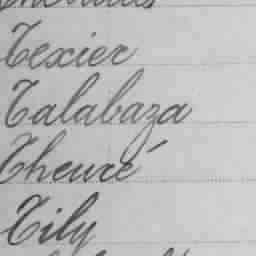 Texier
Talabaza
Theuré
Tily